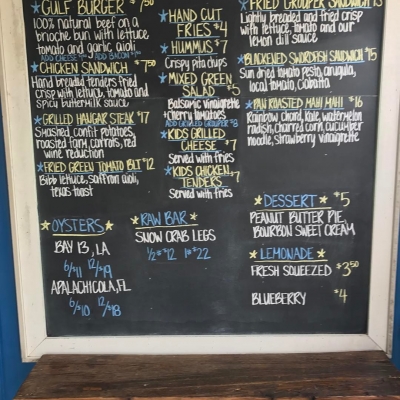 GULF BURGER $7.50
100% natural beef on a
brioche bun with lettuce
tomato and garlic aioli
ADD CHEESE ADD BACON
CHICKEN SANDWICH $7.50
Hand breaded tenders fried
crisp with lettuce, tomato and
spicy buttermilk sauce
GRILLED HANGAR STEAK $17
Smashed, confit potatoes,
roasted farm carrots, red
wine reduction
FRIED GREEN TOMATO BLT $12
Bibb lettuce, saffron aioli,
texas toast
HAND CUT
FRIES $4
HUMMUS $7
Crispy pita chips
MIXED GREEN
SALAD $5
Balsamic vinaigrette
+ cherry tomatoes
ADD GRILLED GROUPER $8
KIDS GRILLED
CHEESE $7
Served with fries
KIDS CHICKEN
TENDERS $7
Served with fries
FRIED GROUPER SANDWICH $13
Lightly breaded and fried crisp
with lettuce, tomato and our
lemon dill sauce
BLACKENED SWORDFISH SANDWICH $15
Sun dried tomato pesto, arugula,
local tomato, Ciabatta
PAN ROASTED MAHI MAHI $16
Rainbow Chard, kale, watermelon
radish, charred corn, cucumber
noodle, strawberry vinaigrette
OYSTERS
BAY 13, LA
6/$11 12/$19
APALACHICOLA, FL
6/$10 12/$18
RAW BAR
SNOW CRAB LEGS
1/2# $12 1# $22
DESSERT $5
PEANUT BUTTER PIE,
BOURBON SWEET CREAM
LEMONADE
FRESH SQUEEZED $3.50
BLUEBERRY $4